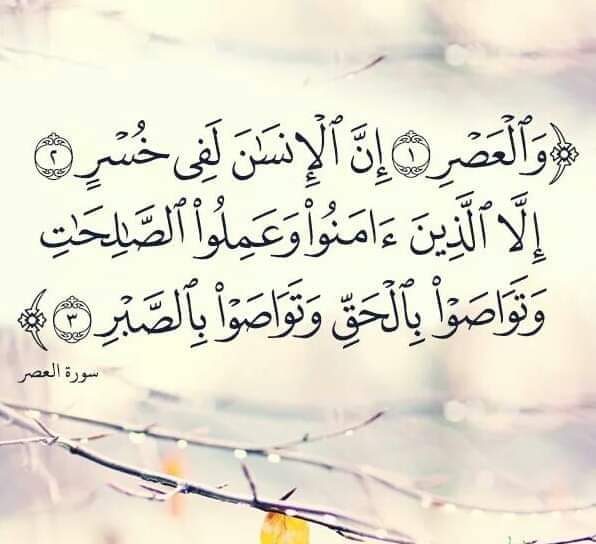 ﴿وَٱلۡعَصۡرِ ١ إِنَّ ٱلۡإِنسَٰنَ لَفِى خُسۡرٍ ٢
إِلَّا ٱلَّذِينَ ءَامَنُوا۟ وَعَمِلُوا۟ ٱلصَّـٰلِحَـٰتِ
وَتَوَاصَوۡا۟ بِٱلۡحَقِّ وَتَوَاصَوۡا۟ بِٱلصَّبۡرِ ٣﴾
سورة العصر